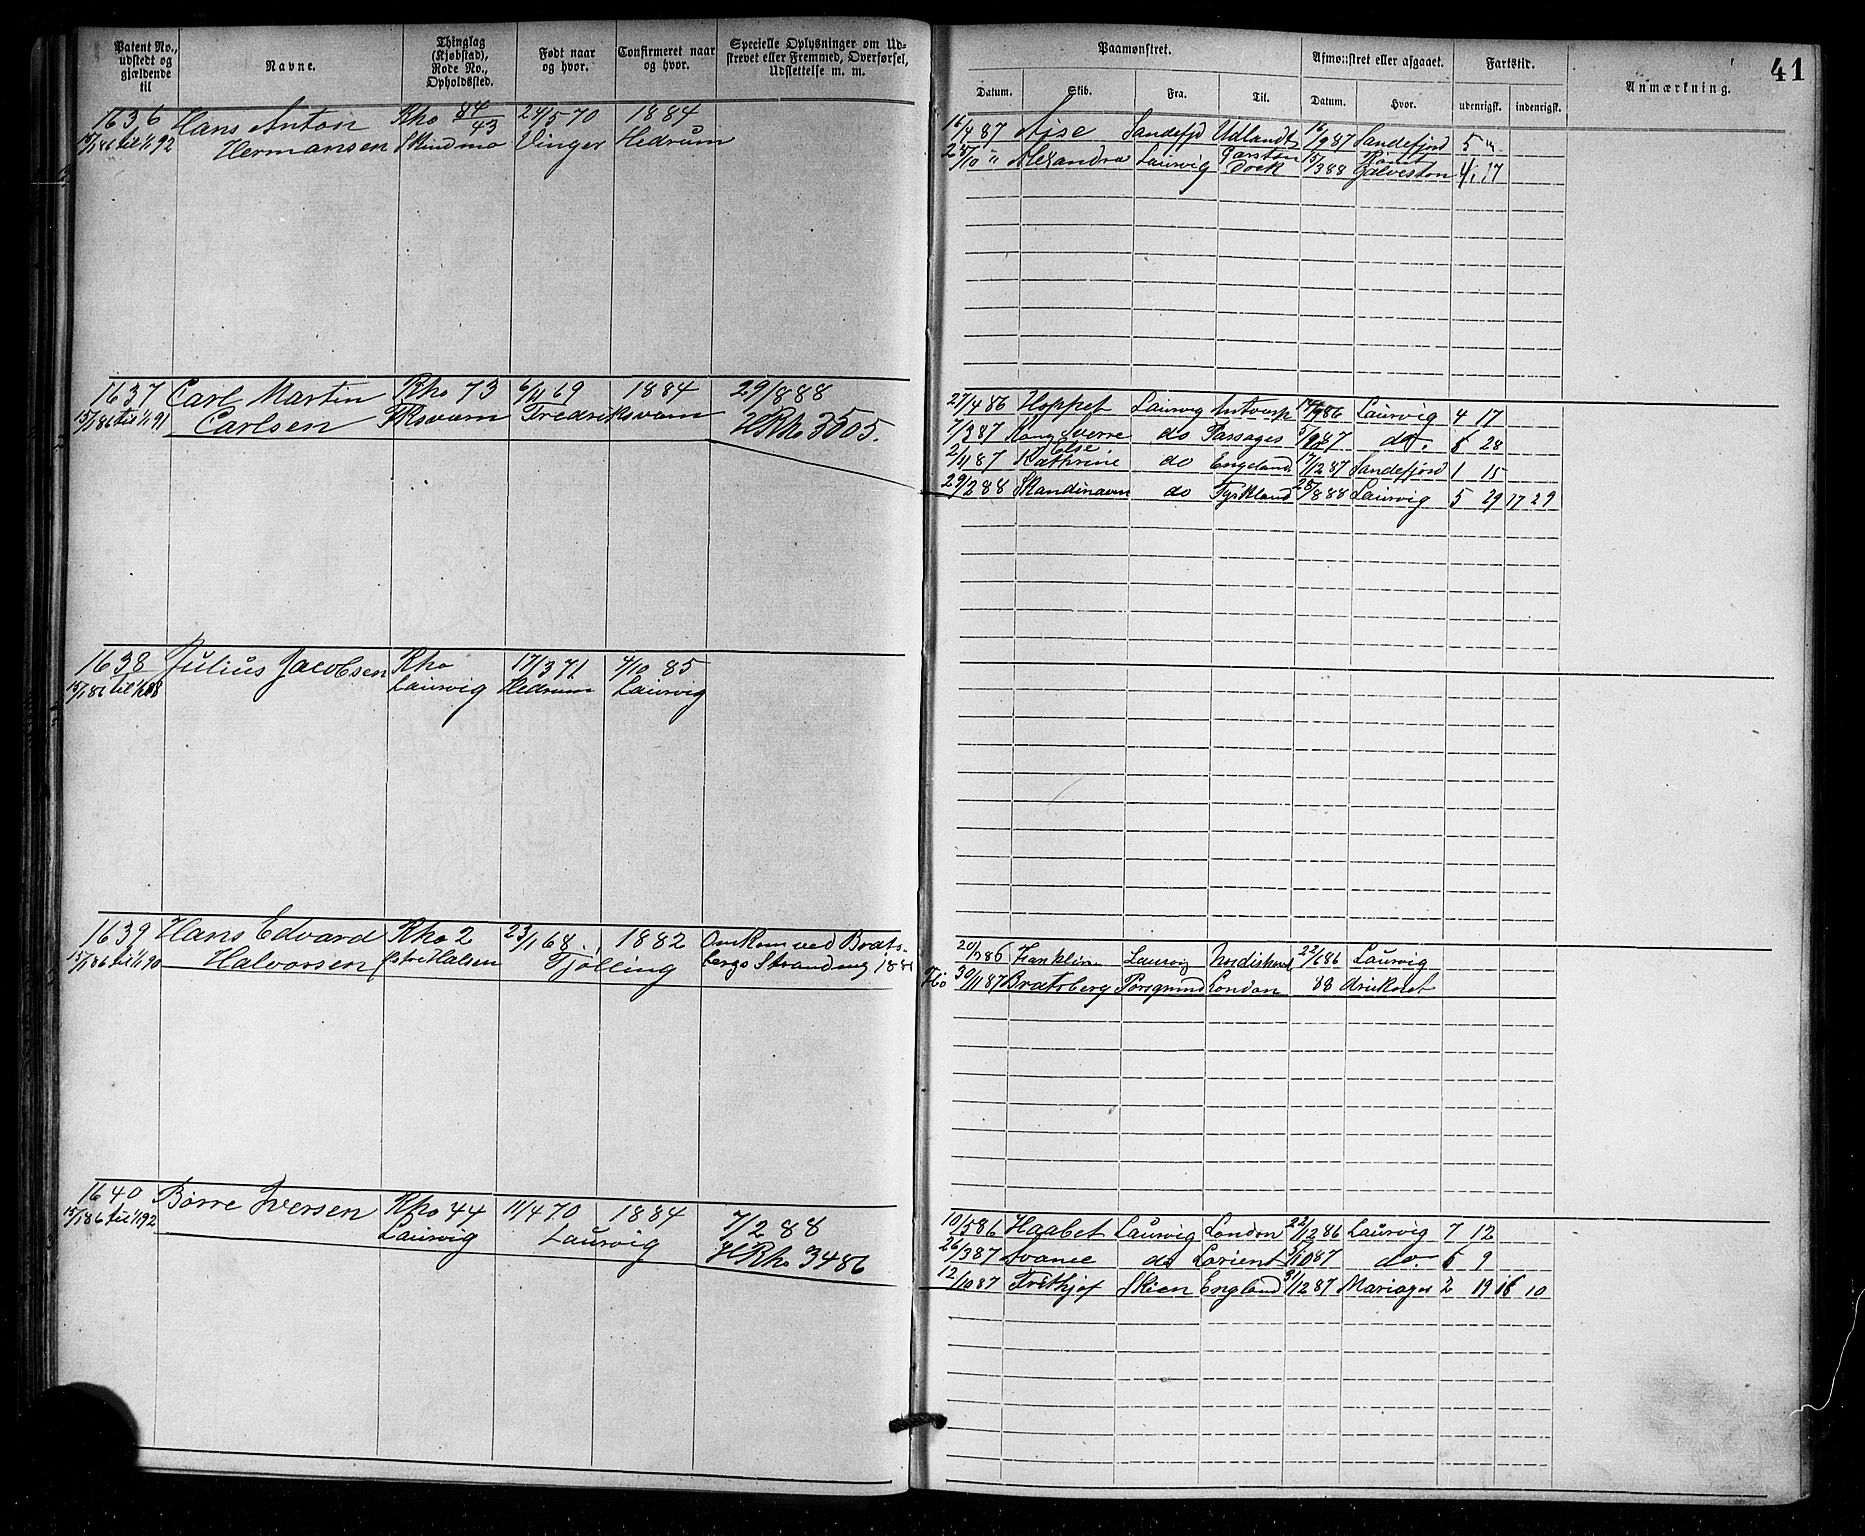 Patent No., udstedt og gjældende til
Navne.
Thinglag (Kjøbstad), Rode No., Opholdssted.
Født naar og hvor.
Confirmeret naar og hvor.
Specielle Oplysninger om Udskrevet eller Fremmed, Overførsel, Udslettelse m. m.
Paamønstret.
Afmønstret eller afgaaet.
Fartstid.
Anmærkning.
41
Datum. Skib. Fra. Til. Datum. Hvor. udenrigsk. indenrigsk.
1636 Hans Anton Rho 84/43 24/5 70 1884
15/1 86 til 1/1 92 Hermansen Vinger Hedrum
16/4 87 Sandefjd Udlandt 14/9 87 Sandefjord 5
25/10 " Alexandra Laurvig Garston 15/3 88 Rømt
Dock Galveston 4 17
1637 Carl Martin Rho 73 6/11 69 1884 29/8 88
15/1 86 til 1/1 91 Carlsen Fksværn Fredriksværn HRho 3505.
27/4 86 Hoppet Laurvig Antverp 86 Laurvig 4 17
7/3 87 Kong Sverre do Passages 5/9 87 do. 6 28
Else
2/11 87 Kathrine do England 17/12 87 Sandefjord 1 15
29/2 88 Skandinavn do Tyskland 28/8 88 Laurvig 5 29 17 29
1638 Julius Jacobsen Rho 17/3 71 4/10 85
15/1 86 til Laurvig Hedrum Laurvig
1639 Hans Edvard Rho 2 23/1 68 1882 Omkom ved Brats-
15/1 86 til 1/1 90 Halvorsen Østre Halsen Tjølling bergs Stranding
86 Laurvig 22/6 86 Laurvig
30/11 87 Bratsberg Porsgrund London 88 druknet
1640 Børre Iversen Rho 44 11/4 70 1884 7/2 88
15/1 86 til 1/1 92 Laurvig Laurvig HRho 3486
10/5 86 Haabet Laurvig London 22/12 86 Laurvig 7 12
26/3 87 Avance do Lorient 5/10 87 do. 6 9
12/10 87 Frithjof Skien England 31/12 87 Mariager 2 19 16 10